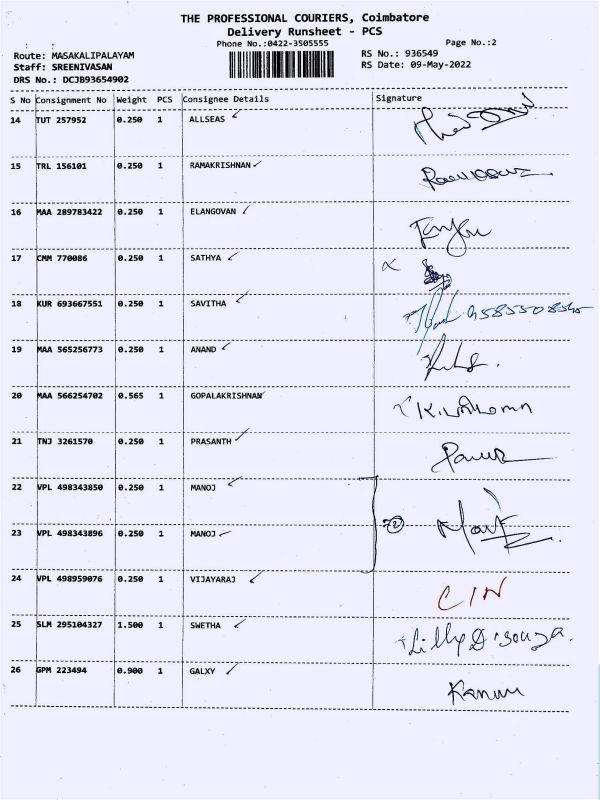 THE PROFESSIONAL COURIERS, Coimbatore
Delivery Runsheet - PCS
Phone No.:0422-3505555 Page No.:2
Route: MASAKALIPALAYAM RS No.: 936549
Staff: SREENIVASAN RS Date: 09-May-2022
DRS No.: DCJB93654902
S No Consignment No Weight PCS Consignee Details Signature
14 TUT 257952 0.250 1 ALLSEAS
15 TRL 156101 0.250 1 RAMAKRISHNAN
16 MAA 289783422 0.250 1 ELANGOVAN
17 CMM 770086 0.250 1 SATHYA
18 KUR 693667551 0.250 1 SAVITHA
19 MAA 565256773 0.250 1 ANAND
20 MAA 566254702 0.565 1 GOPALAKRISHNAN
21 TNJ 3261570 0.250 1 PRASANTH
22 VPL 498343850 0.250 1 MANOJ
23 VPL 498343896 0.250 1 MANOJ
24 VPL 498959076 0.250 1 VIJAYARAJ CIN
25 SLM 295104327 1.500 1 SWETHA Lilly D'souza.
26 GPM 223494 0.900 1 GALXY